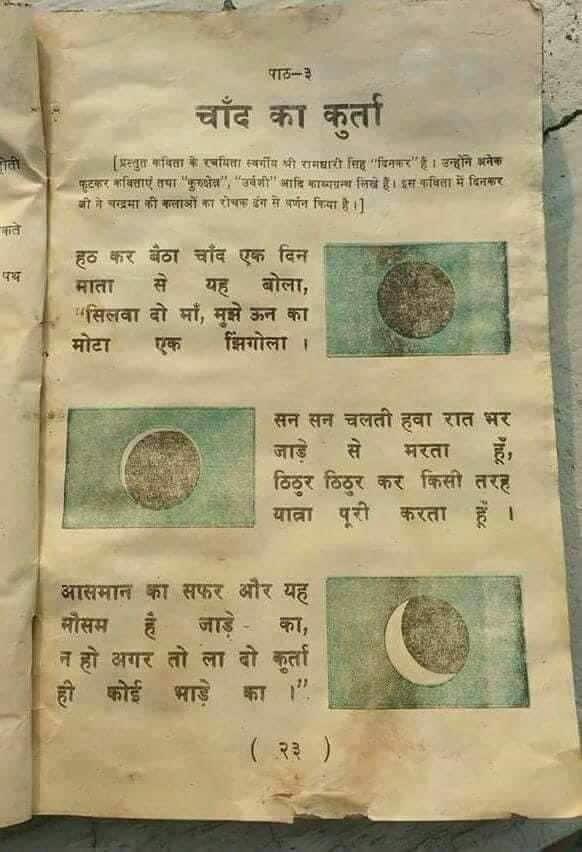 पाठ-३
चाँद का कुर्ता
[प्रस्तुत कविता के रचयिता स्वर्गीय श्री रामधारी सिंह "दिनकर" हैं । उन्होंने अनेक
फुटकर कविताएं तथा "कुरुक्षेत्र", "उर्वशी" आदि काव्यग्रन्थ लिखे हैं। इस कविता में दिनकर
जी ने चन्द्रमा की कलाओं का रोचक ढंग से वर्णन किया है।]
हठ कर बैठा चाँद एक दिन
माता से यह बोला,
"सिलवा दो माँ, मुझे ऊन का
मोटा एक झिंगोला ।
सन सन चलती हवा रात भर
जाड़े से मरता हूँ,
ठिठुर ठिठुर कर किसी तरह
यात्रा पूरी करता हूँ ।
आसमान का सफर और यह
मौसम है जाड़े का,
न हो अगर तो ला दो कुर्ता
ही कोई भाड़े का ।"
( २३ )
पथ